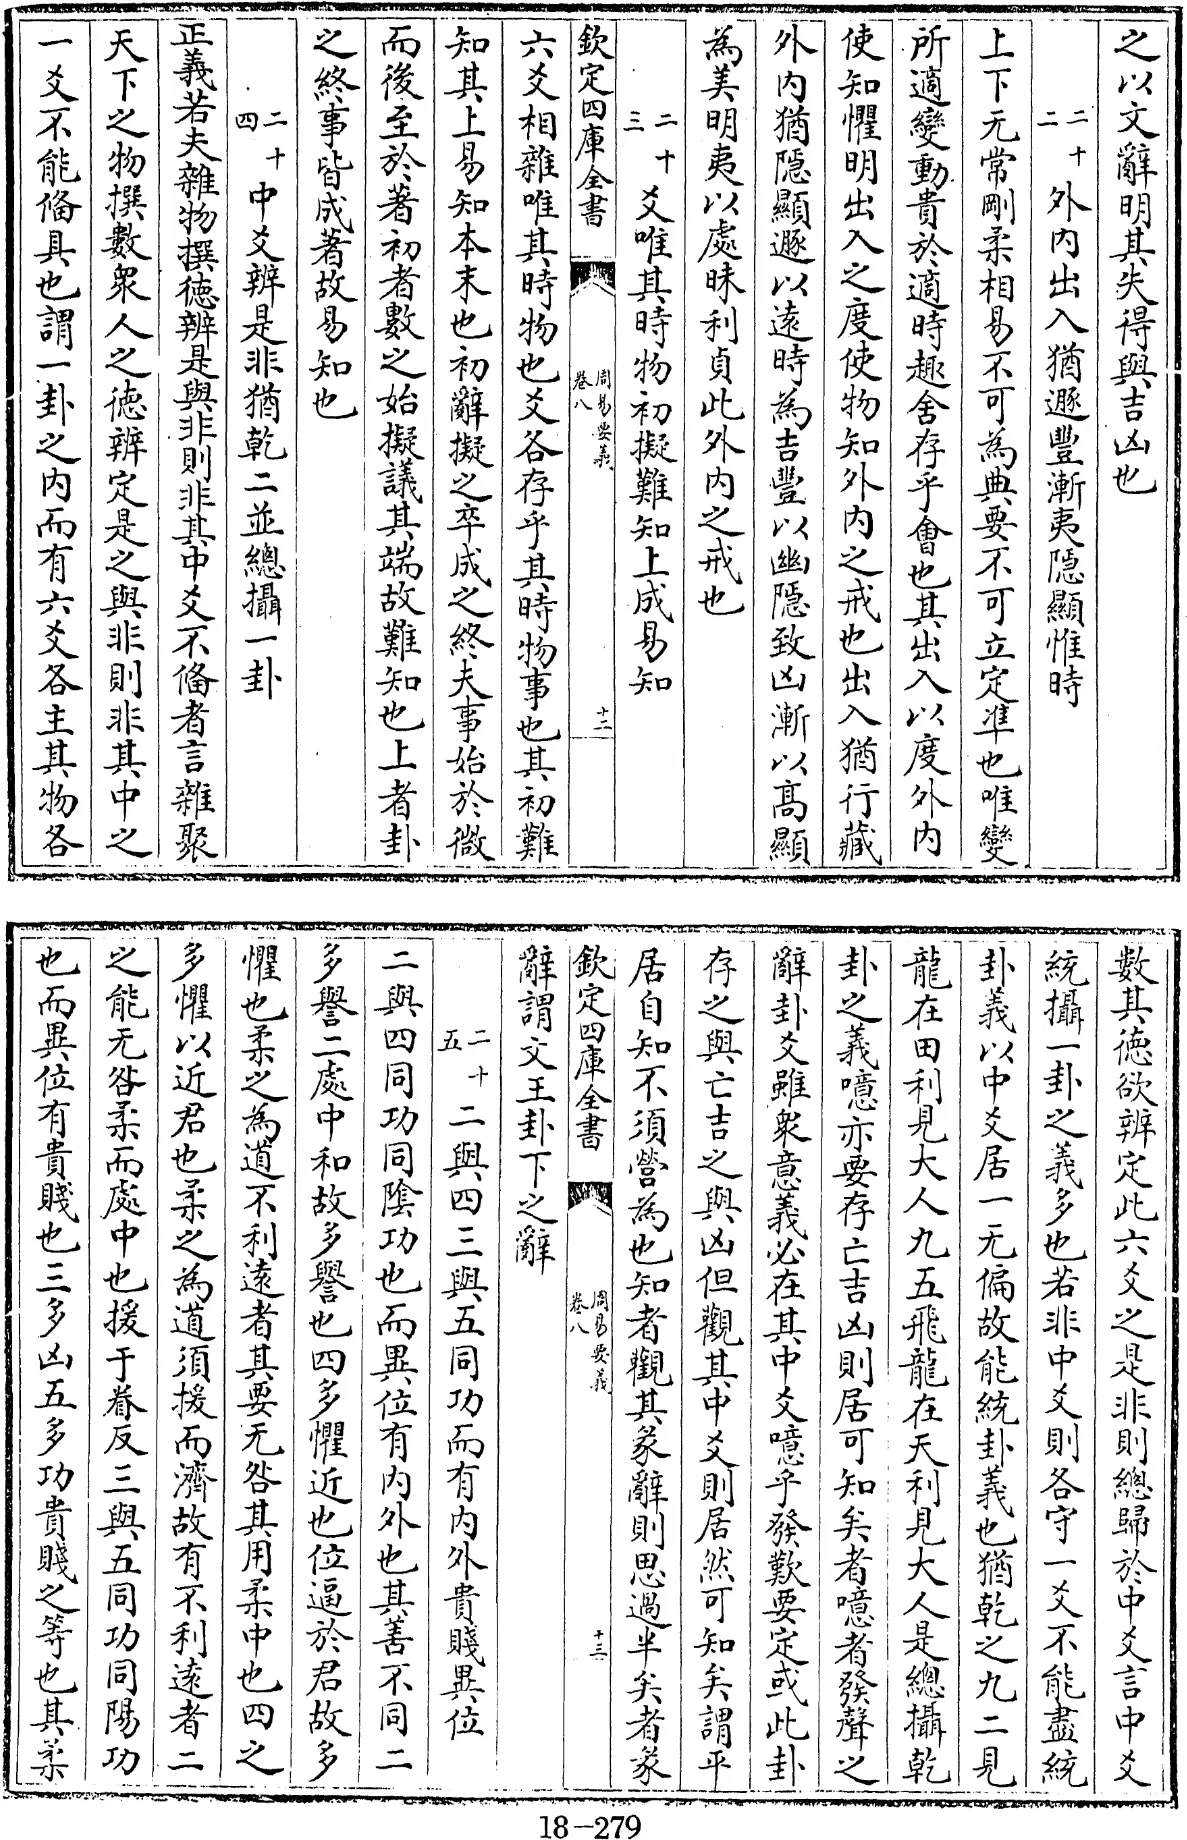 之以文辭明其失得與吉凶也
二十二 外内出入猶遯豐漸夷隱顯惟時
上下无常剛柔相易不可為典要不可立定準也唯變
所適變動貴於適時趣舍存乎會也其出入以度外内
使知懼明出入之度使物知外内之戒也出入猶行藏
外内猶隱顯遯以遠時為吉豐以幽隱致凶漸以髙顯
為美明夷以處昧利貞此外内之戒也
二十三 爻唯其時物初擬難知上成易知
欽定四庫全書
周易要義
卷八
十二
六爻相雜唯其時物也爻各存乎其時物事也其初難
知其上易知本末也初辭擬之卒成之終夫事始於微
而後至於著初者數之始擬議其端故難知也上者卦
之終事皆成著故易知也
二十四 中爻辨是非猶乾二並總攝一卦
正義若夫雜物撰徳辨是與非則非其中爻不備者言雜聚
天下之物撰數衆人之徳辨定是之與非則非其中之
一爻不能備具也謂一卦之内而有六爻各主其物各
數其徳欲辨定此六爻之是非則總歸於中爻言中爻
統攝一卦之義多也若非中爻則各守一爻不能盡統
卦義以中爻居一无偏故能統卦義也猶乾之九二見
龍在田利見大人九五飛龍在天利見大人是總攝乾
卦之義噫亦要存亡吉凶則居可知矣者噫者發聲之
辭卦爻雖衆意義必在其中爻噫乎發歎要定或此卦
存之與亡吉之與凶但觀其中爻則居然可知矣謂平
居自知不須營為也知者觀其彖辭則思過半矣者彖
欽定四庫全書
周易要義
卷八
十三
辭謂文王卦下之辭
二十五 二與四三與五同功而有内外貴賤異位
二與四同功同陰功也而異位有内外也其善不同二
多譽二處中和故多譽也四多懼近也位逼於君故多
懼也柔之為道不利遠者其要无咎其用柔中也四之
多懼以近君也柔之為道須援而濟故有不利遠者二
之能无咎柔而處中也援于眷反三與五同功同陽功
也而異位有貴賤也三多凶五多功貴賤之等也其柔
18-279